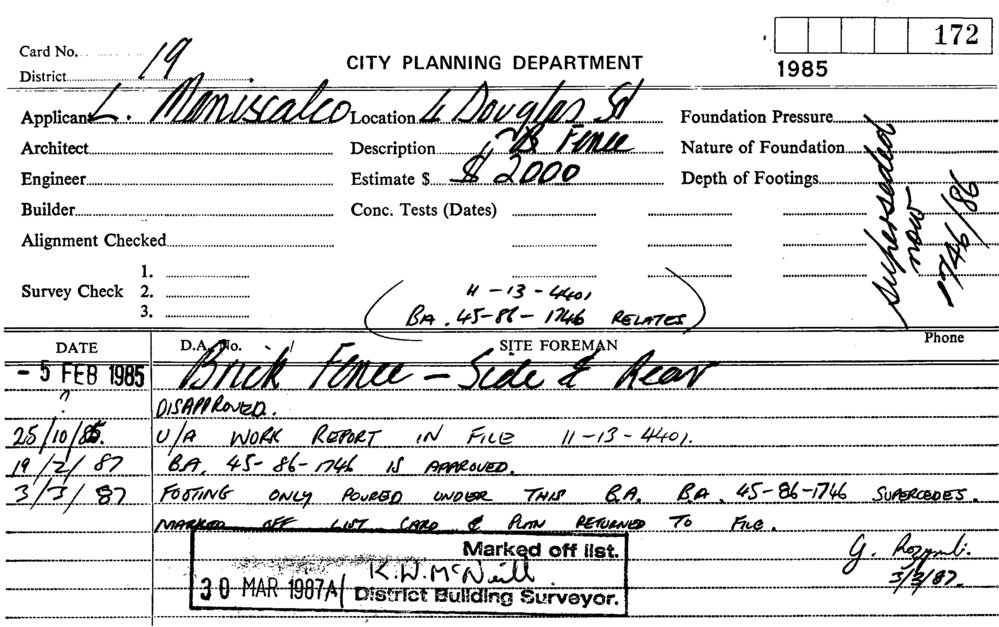 Card No. 19
172
CITY PLANNING DEPARTMENT
1985
District
Applicant L. Maniscalco Location 4 Douglas St Foundation Pressure
Architect Description B Fence Nature of Foundation
Engineer Estimate $ $ 2000 Depth of Footings
Builder Conc. Tests (Dates)
superseded now 1746/86
Alignment Checked
1.
Survey Check 2.
3.
11-13-4401
BA. 45-86-1746 RELATES
DATE D.A. No. SITE FOREMAN Phone
- 5 FEB 1985 Brick Fence - Side & Rear
? DISAPPROVED.
25/10/85. U/A WORK REPORT IN FILE 11-13-4401.
19/2/87 B.A. 45-86-1746 IS APPROVED.
3/3/87 FOOTING ONLY POURED UNDER THIS B.A. BA. 45-86-1746 SUPERCEDES.
MARKED OFF LIST CARD & PLAN RETURNED TO FILE.
Marked off list.
G.
K.W. McNeill
3/3/87.
30 MAR 1987A District Building Surveyor.